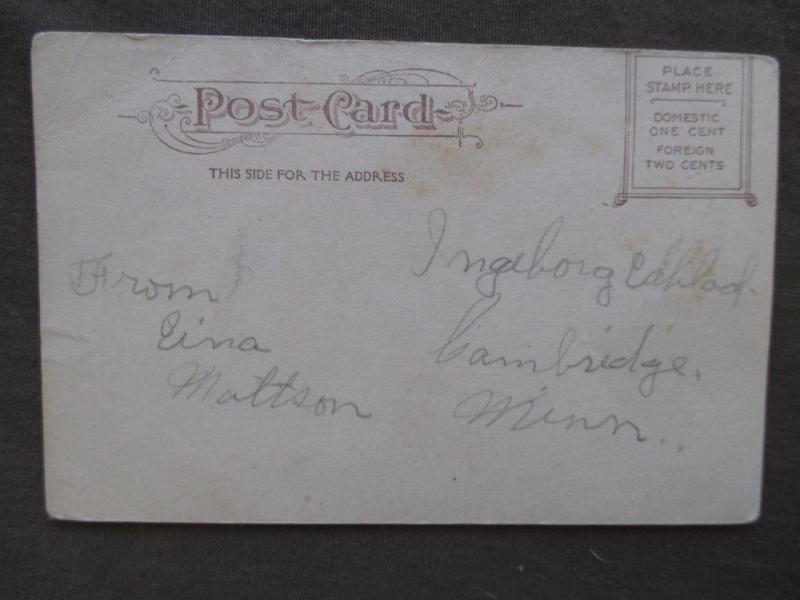 Post Card
THIS SIDE FOR THE ADDRESS
PLACE
STAMP HERE
DOMESTIC
ONE CENT
FOREIGN
TWO CENTS
From
Eina
Mattson
Ingeborg Edblad.
Cambridge,
Minn.,